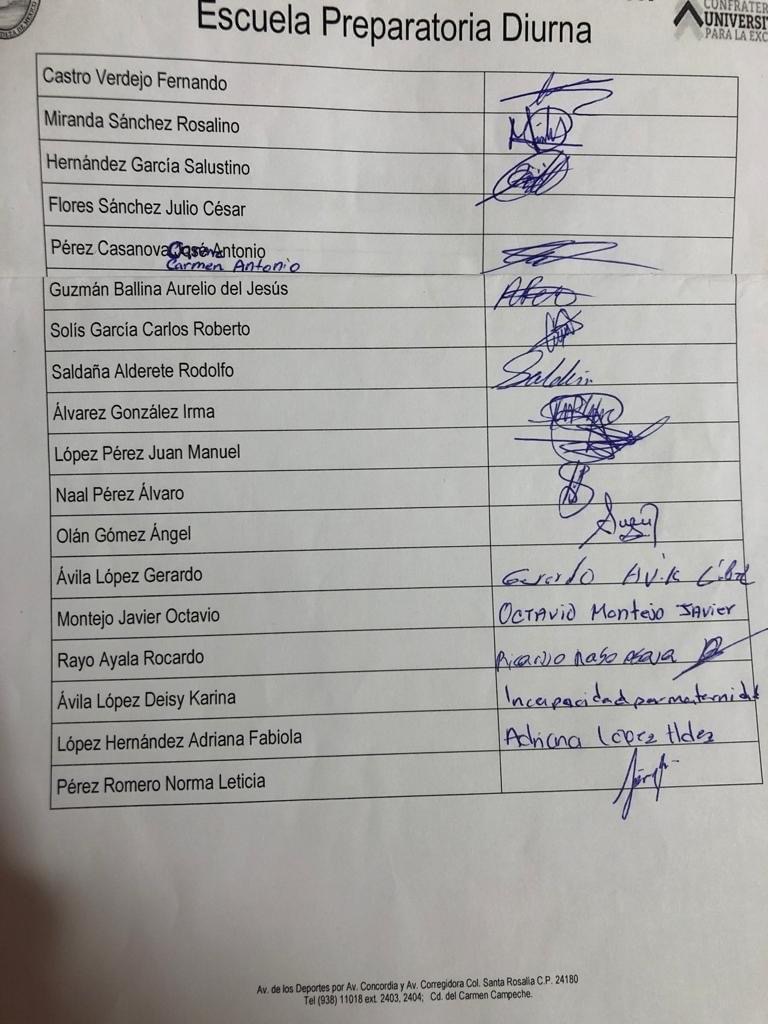 CONFRATER
UNIVERSI
PARA LA EXC
Escuela Preparatoria Diurna
Castro Verdejo Fernando
Miranda Sánchez Rosalino
Hernández García Salustino
Flores Sánchez Julio César
Pérez Casanova José Antonio
Carmen Antonio
Guzmán Ballina Aurelio del Jesús
Solís García Carlos Roberto
Saldaña Alderete Rodolfo
Álvarez González Irma
López Pérez Juan Manuel
Naal Pérez Álvaro
Olán Gómez Ángel
Ávila López Gerardo Gerardo
Montejo Javier Octavio OCTAVIO Montejo JAvier
Rayo Ayala Rocardo Ricardo
Ávila López Deisy Karina Incapacidad por maternidad
López Hernández Adriana Fabiola Adriana López Hdez
Pérez Romero Norma Leticia
Av. de los Deportes por Av. Concordia y Av. Corregidora Col. Santa Rosalía C.P. 24180
Tel (938) 11018 ext. 2403, 2404; Cd. del Carmen Campeche.